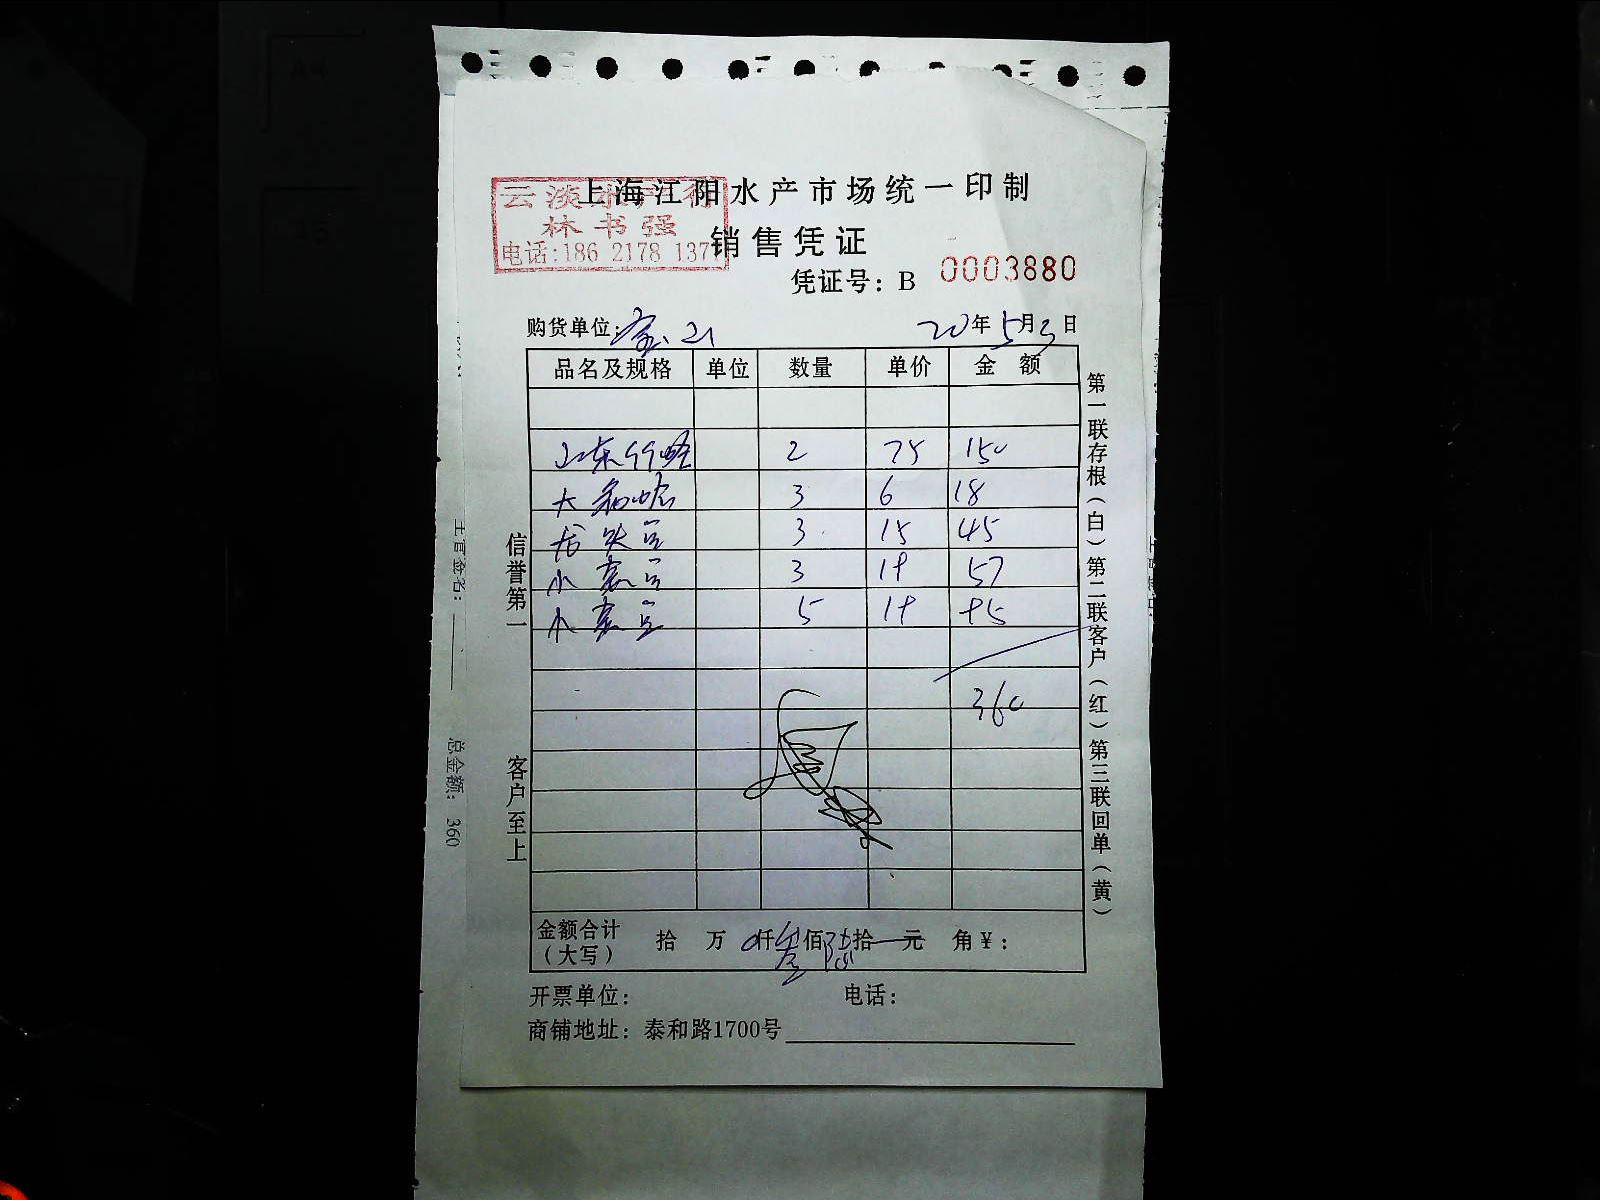 上海江阳水产市场统一印制
云淡水产行
林书强
电话:186 2178 137
销售凭证
凭证号: B 0003880
购货单位: 20年5月3日
品名及规格 单位 数量 单价 金额
山东 2 75 150
大 3 6 18
3 15 45
小 3 19 57
小 5 19 95
360
金额合计(大写) 拾 万 0仟叁佰陆拾 元 角¥:
开票单位: 电话:
商铺地址: 泰和路1700号
信誉第一
客户至上
第一联存根(白)第二联客户(红)第三联回单(黄)
总金额: 360